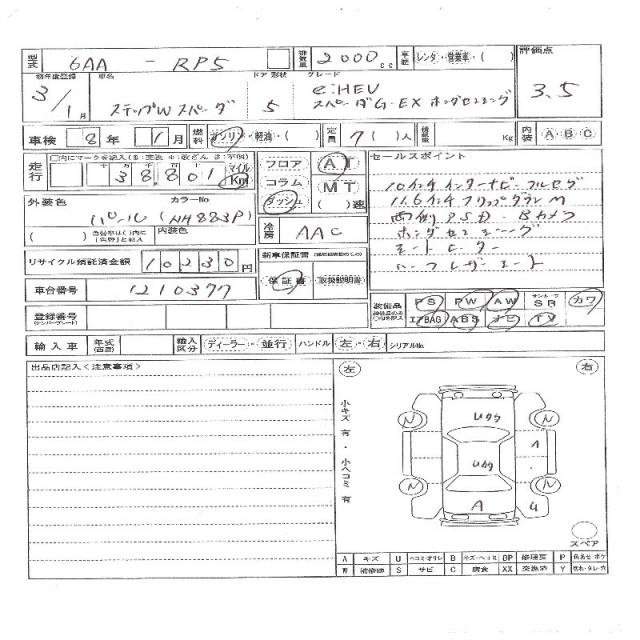 型式 6AA - RP5 排気量 2000cc 車歴 レンタ・営業車・( ) 評価点
初年度登録 車名 ドア 形状 グレード
3/1月 ステップWスパーダ 5 e:HEV スパーダG・EX ホンダセンシング 3.5
車検 8年 1月 燃料 ガソリン・軽油・( ) 定員 7( )人 積載量 Kg 内装 A・B・C
走行 38,801 マイル Km フロア コラム ダッシュ AT MT ( )速
セールスポイント
10インチインターナビ フルセグ
11.6インチフリップダウンM
両側PSD Bカメラ
ホンダセンシング
シートヒーター
ハーフレザーシート
外装色 カラーNo
パール (NH883P)
( ) 内装色
冷房 AAC
リサイクル預託済金額 10230円
新車保証書
保証書・取扱説明書
車台番号 1210377
装備品 PS PW AW SR カワ
エアBAG ABS ナビ TV
登録番号
輸入車 年式(西暦) 輸入区分 ディーラー・並行 ハンドル 左・右 シリアルNo.
出品店記入<注意事項>
左 右
小キズ 有・小ヘコミ 有
Uウク
Uウク
A
A
U
N
N
N
N
スペア
A キズ U ヘコミ B キズ・ヘコミ 修理要 P
補修跡 S サビ C 腐食 XX 交換済 Y